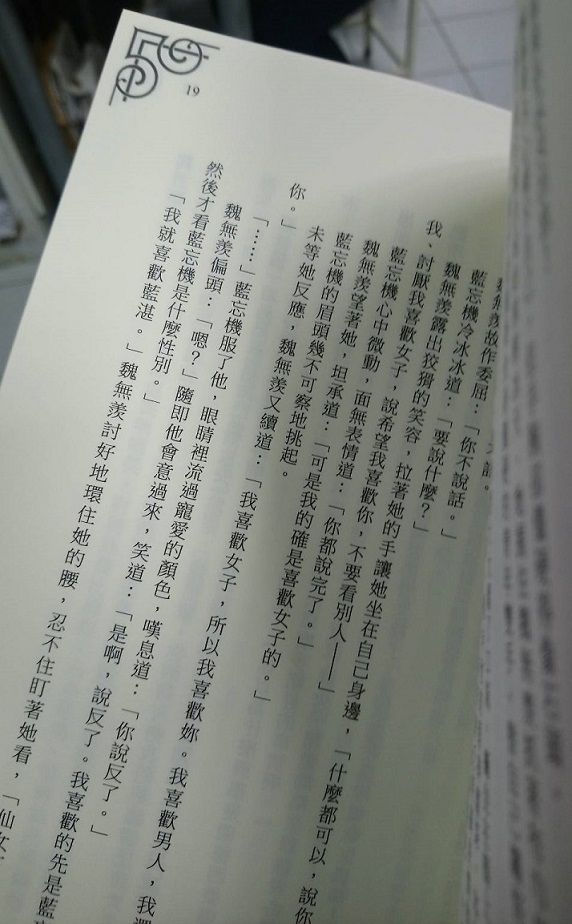 19
魏無羨故作委屈：「你不說話。」
藍忘機冷冰冰道：「要說什麼？」
魏無羨露出狡猾的笑容，拉著她的手讓她坐在自己身邊，「什麼都可以，說你
我、討厭我喜歡女子，說希望我喜歡你，不要看別人——」
藍忘機心中微動，面無表情道：「你都說完了。」
魏無羨望著她，坦承道：「可是我的確是喜歡女子的。」
藍忘機的眉頭幾不可察地挑起。
未等她反應，魏無羨又續道：「我喜歡女子，所以我喜歡妳。我喜歡男人，我還
你。」
「……」藍忘機服了他，眼睛裡流過寵愛的顏色，嘆息道：「你說反了。」
魏無羨偏頭：「嗯？」隨即他會意過來，笑道：「是啊，說反了。我喜歡的先是藍
然後才看藍忘機是什麼性別。」
「我就喜歡藍湛。」魏無羨討好地環住她的腰，忍不住盯著她看，「仙女